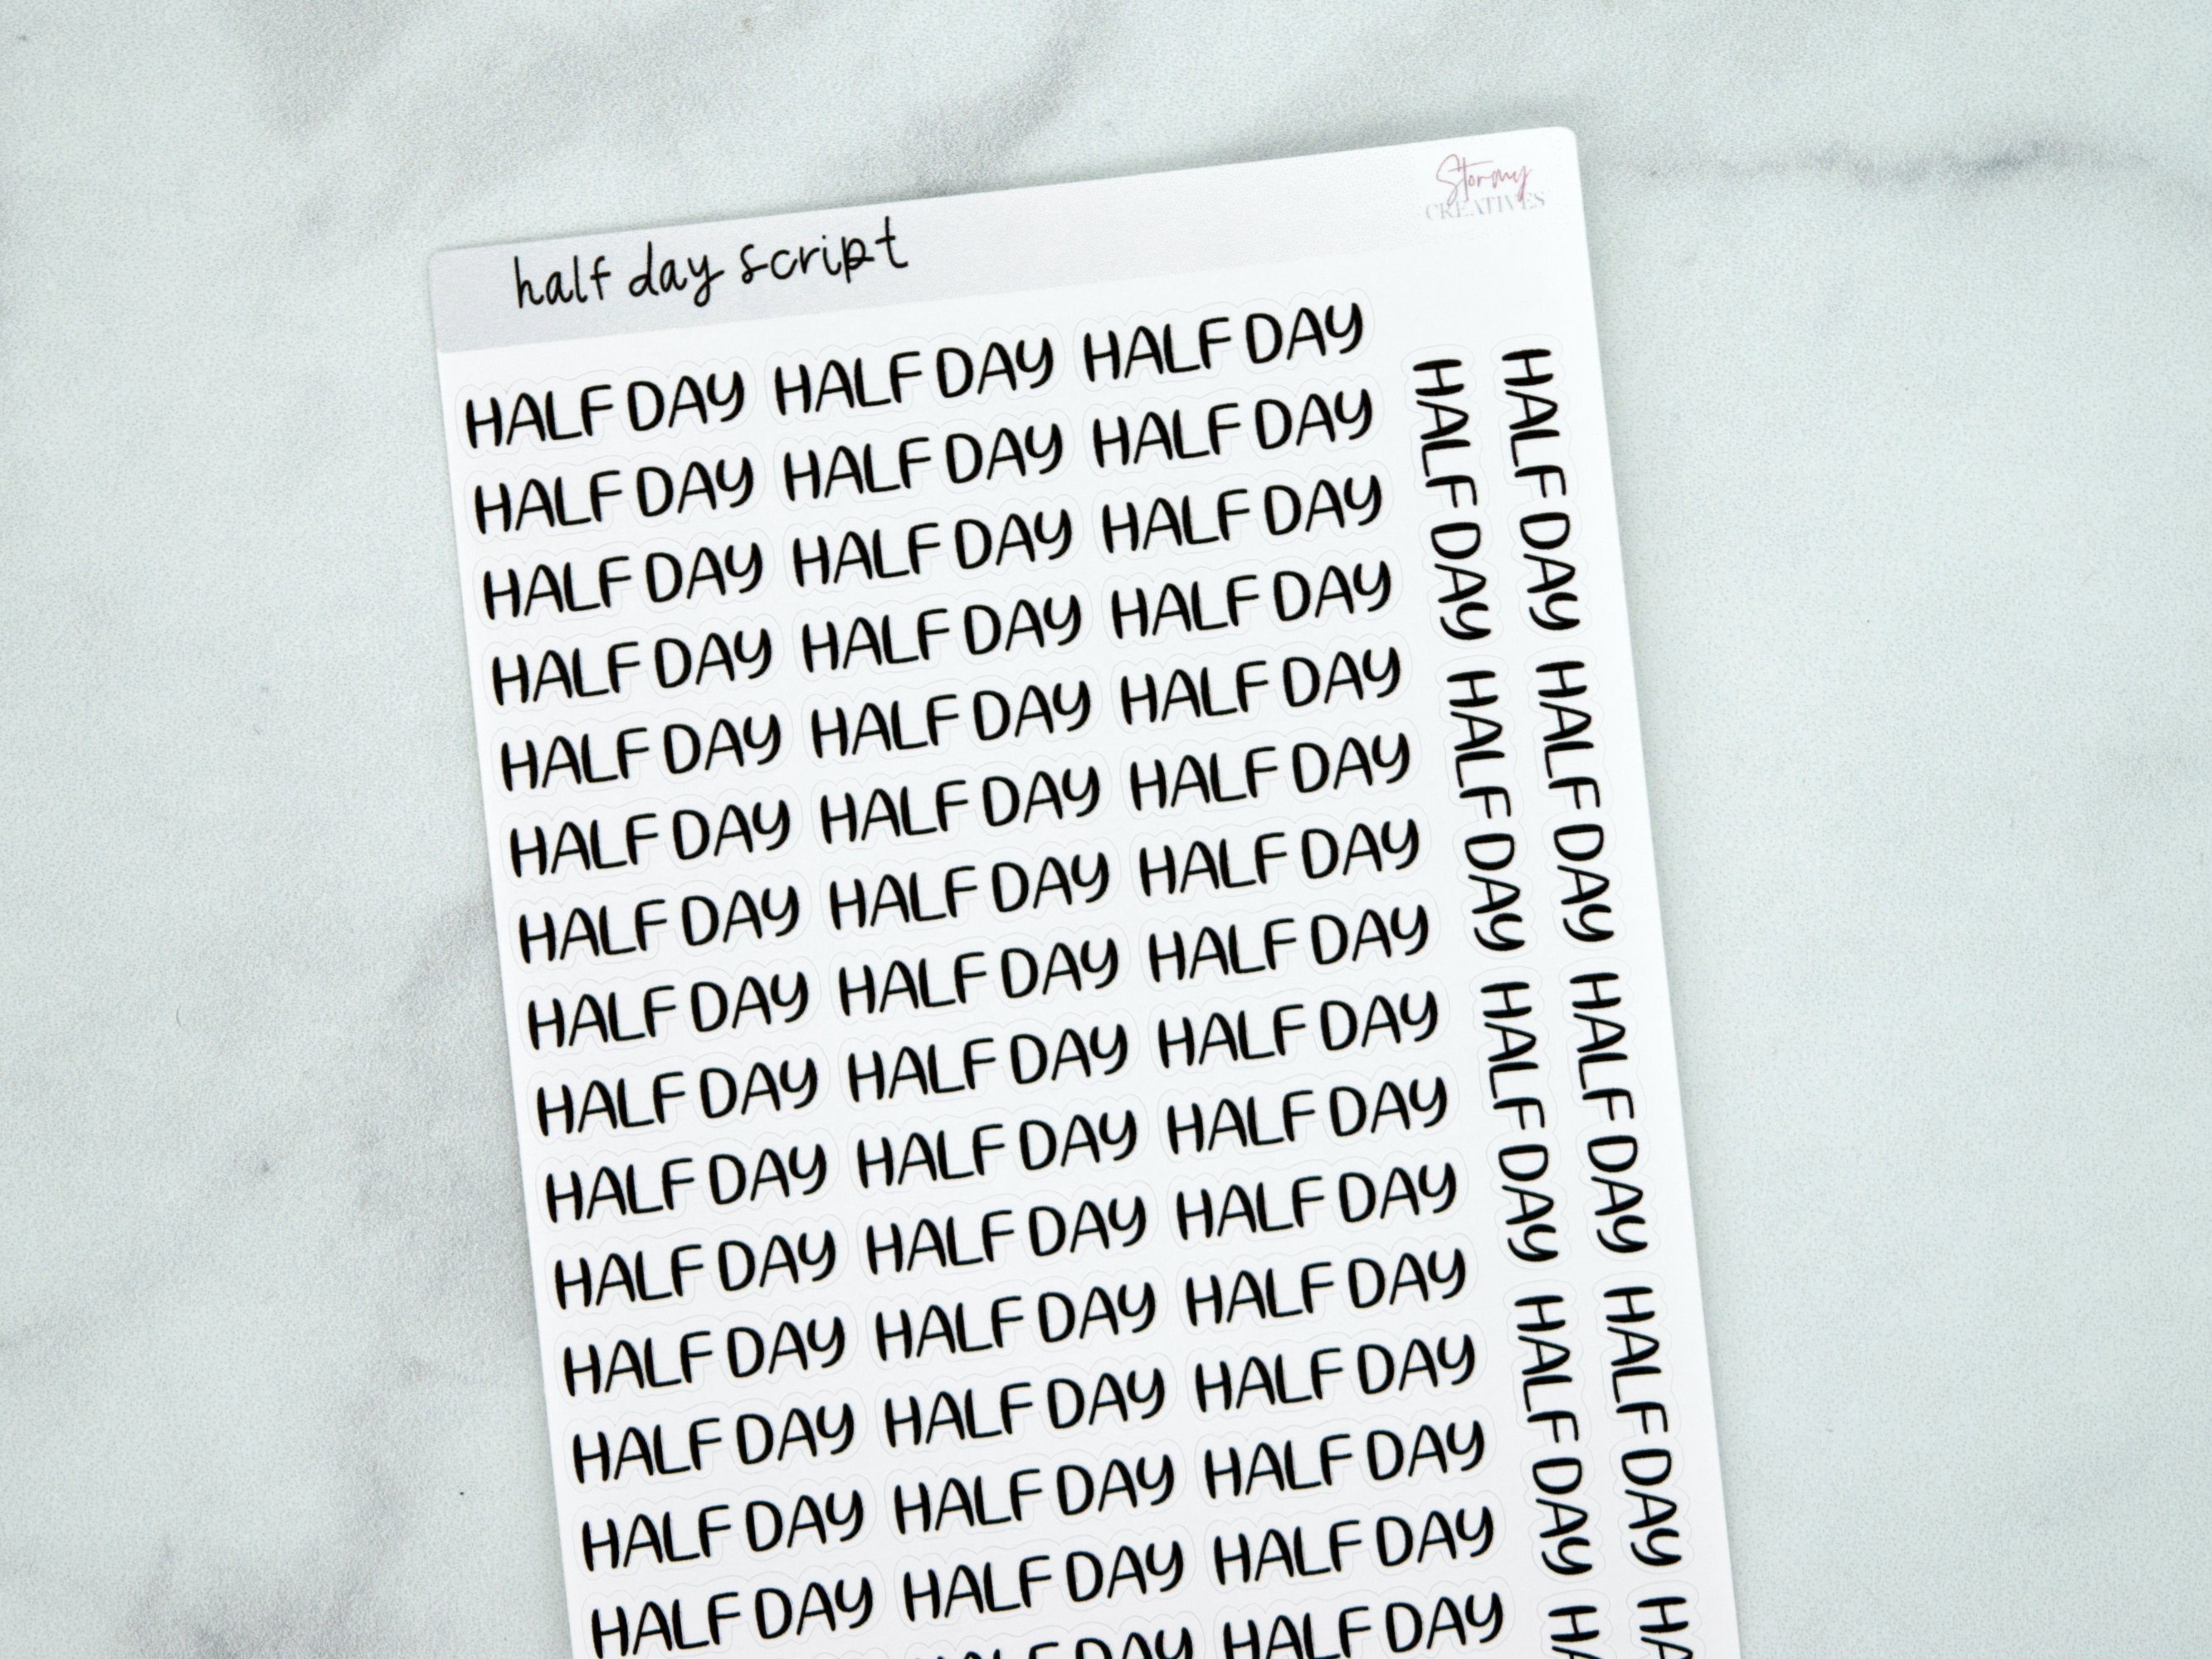 half day script
Stormy
CREATIVES
HALF DAY HALF DAY HALF DAY
HALF DAY HALF DAY HALF DAY
HALF DAY HALF DAY HALF DAY
HALF DAY HALF DAY HALF DAY
HALF DAY HALF DAY HALF DAY
HALF DAY HALF DAY HALF DAY
HALF DAY HALF DAY HALF DAY
HALF DAY HALF DAY HALF DAY
HALF DAY HALF DAY HALF DAY
HALF DAY HALF DAY HALF DAY
HALF DAY HALF DAY HALF DAY
HALF DAY HALF DAY HALF DAY
HALF DAY HALF DAY HALF DAY
HALF DAY HALF DAY HALF DAY
HALF DAY HALF DAY HALF DAY
HALF DAY HALF DAY
HALF DAY HALF DAY HALF DAY HALF DAY HA
HALF DAY HALF DAY HALF DAY HALF DAY HA